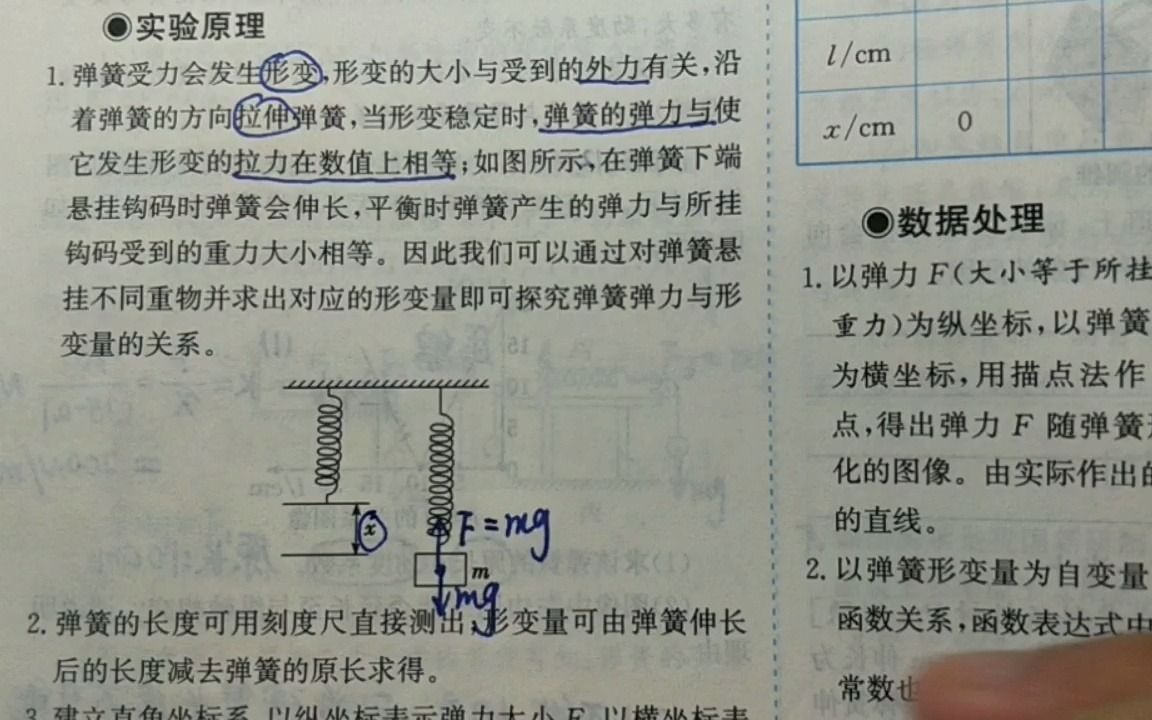 ●实验原理
1. 弹簧受力会发生形变,形变的大小与受到的外力有关,沿
着弹簧的方向拉伸弹簧,当形变稳定时,弹簧的弹力与使
它发生形变的拉力在数值上相等;如图所示,在弹簧下端
悬挂钩码时弹簧会伸长,平衡时弹簧产生的弹力与所挂
钩码受到的重力大小相等。因此我们可以通过对弹簧悬
挂不同重物并求出对应的形变量即可探究弹簧弹力与形
变量的关系。
x
F=mg
m
mg
2. 弹簧的长度可用刻度尺直接测出,形变量可由弹簧伸长
后的长度减去弹簧的原长求得。
3. 建立直角坐标系,以纵坐标表示弹力大小 F,以横坐标表
l/cm
x/cm 0
●数据处理
1. 以弹力 F(大小等于所挂
重力)为纵坐标,以弹簧
为横坐标,用描点法作
点,得出弹力 F 随弹簧
化的图像。由实际作出的
的直线。
2. 以弹簧形变量为自变量
函数关系,函数表达式中
常数也